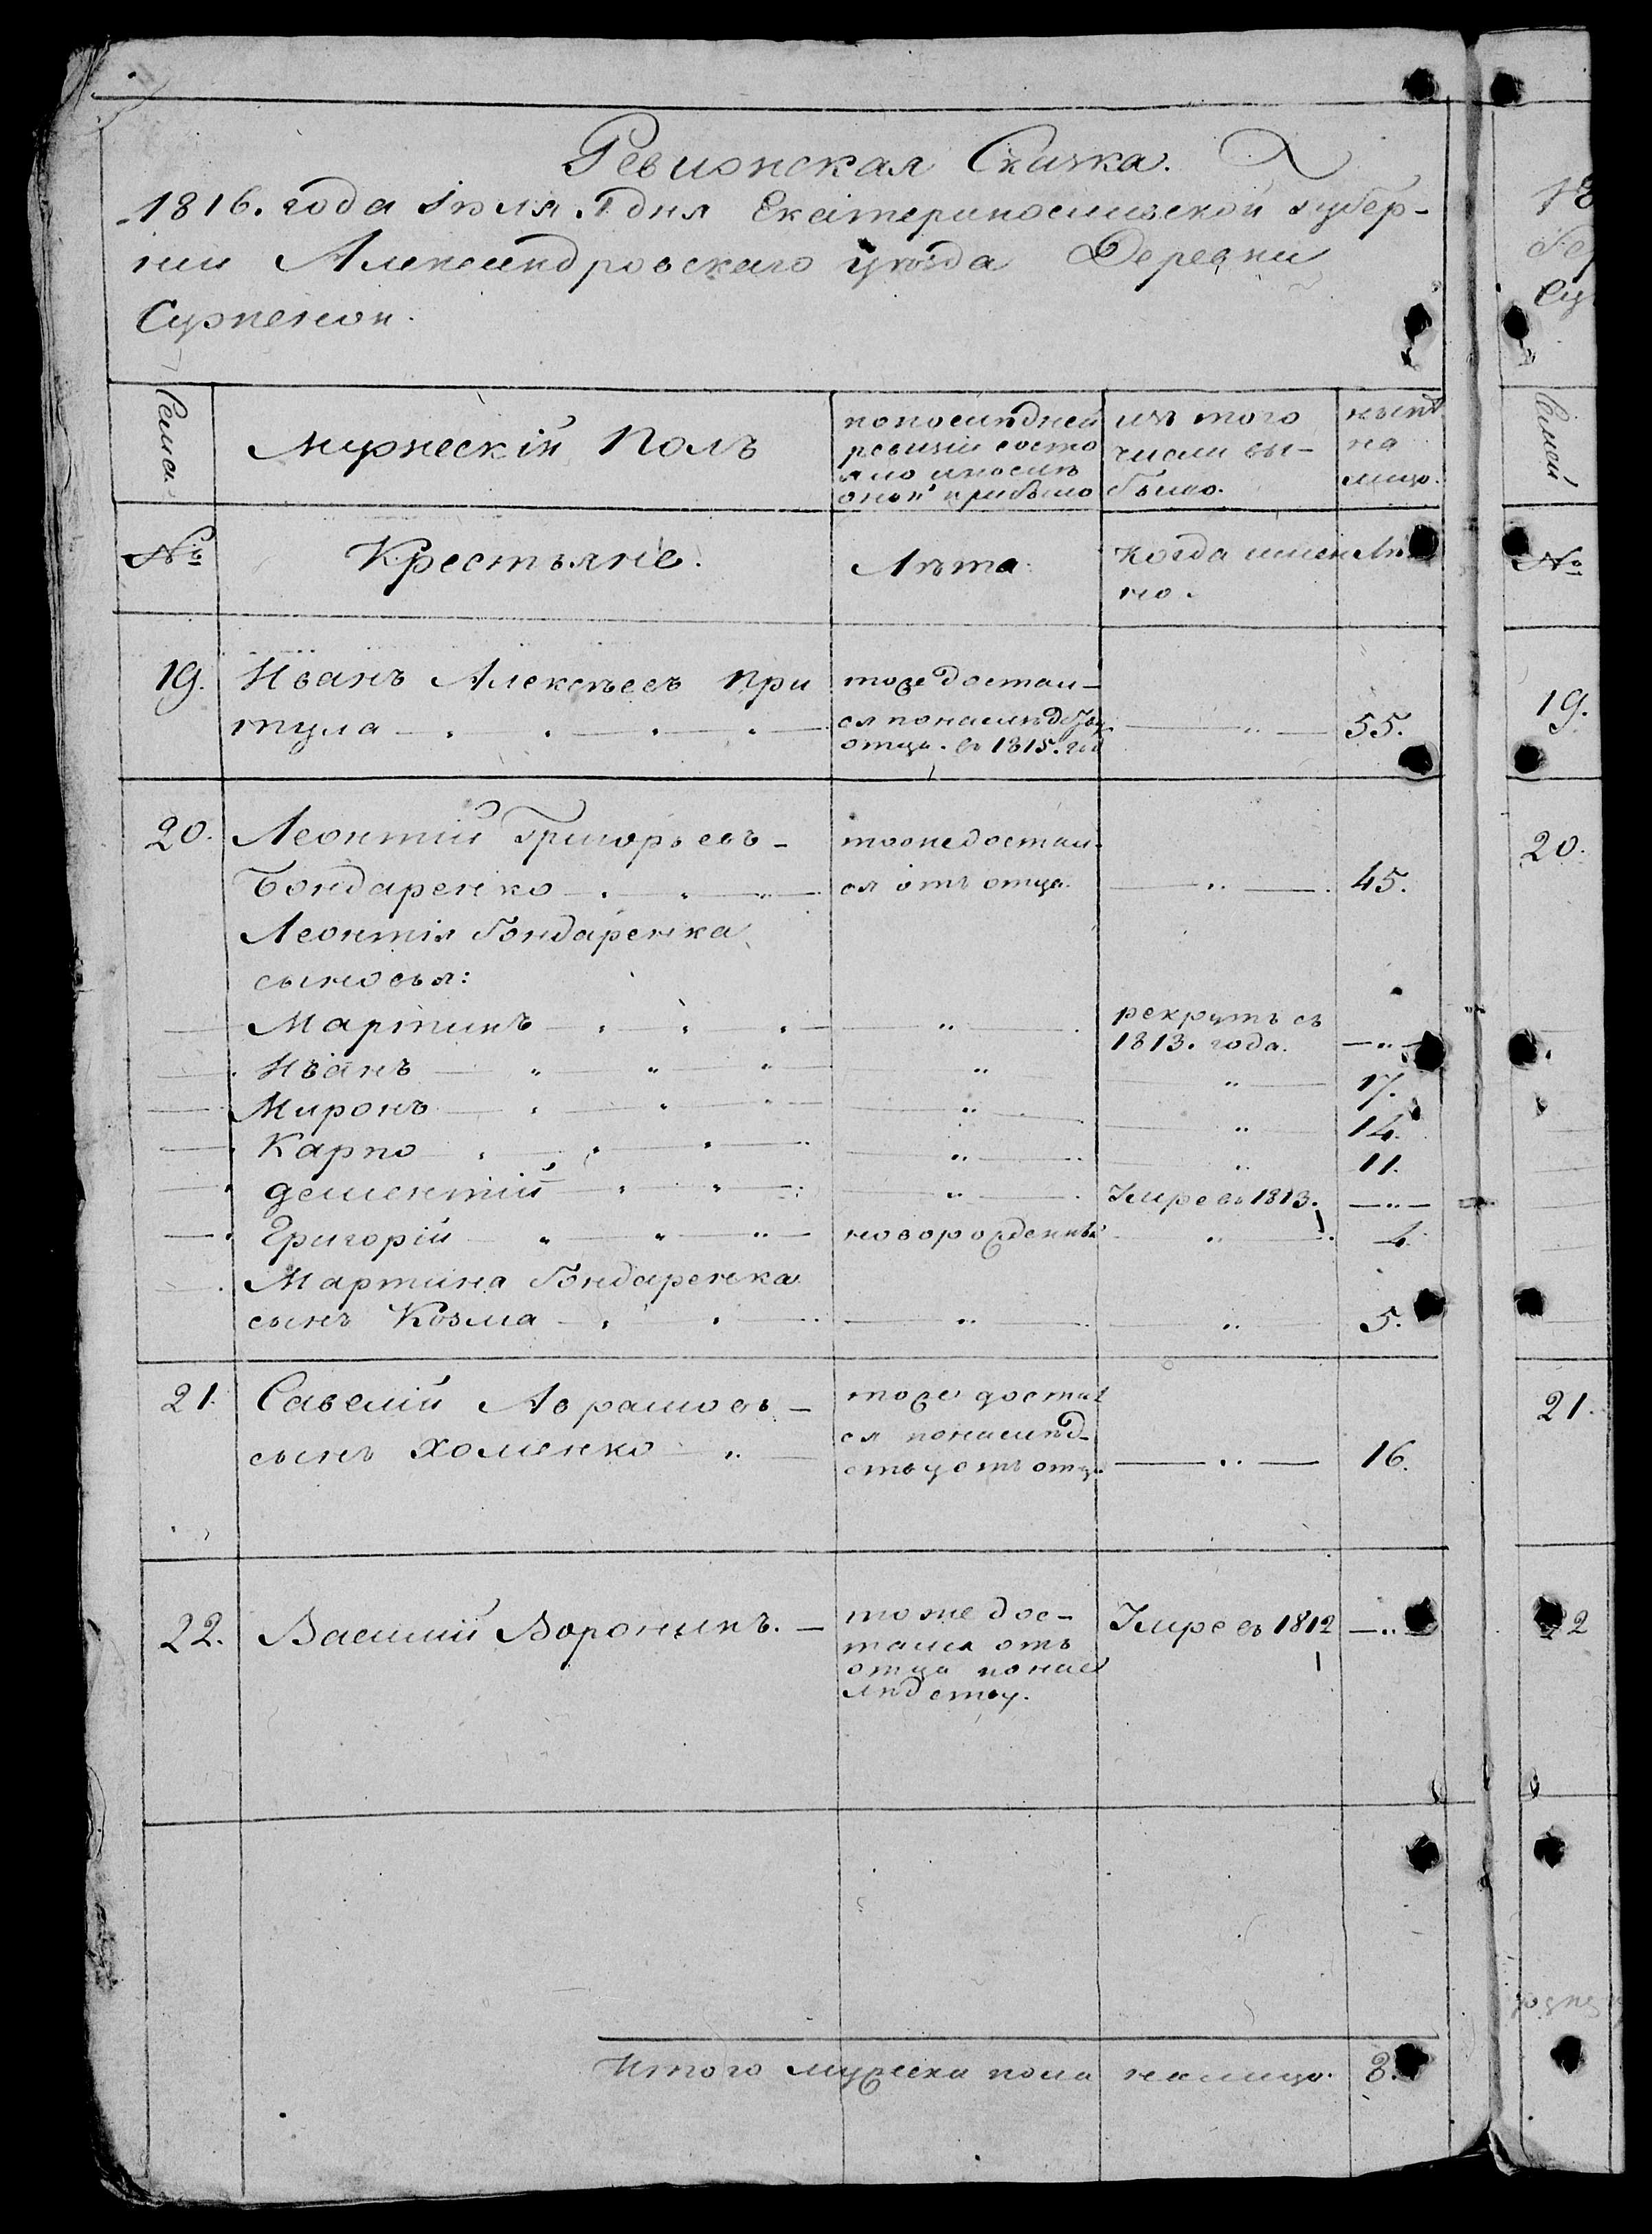 Ревизская Сказка.
1816. года Іюля 1 дня Екатеринославской губер-
нии Александровскаго уѣзда Деревни
Семьи.
Мужескій Полъ
по последней
ревизіи состо
яло и послѣ
оной прибыло
изъ того
числа вы-
было.
нынѣ
на
лицо.
№
Крестьяне.
Лѣта
когда имен
но.
Лѣ
19. Иванъ Алексѣевъ При
тула
тоже достал-
ся по наслѣдству
отца. въ 1815. год
55.
20. Леонтій Григорьевъ-
Бондаренко
тоже достал-
ся отъ отца.
45.
Леонтія Бондаренка
сыновья:
Мартинъ
рекрутъ съ
1813. года.
Иванъ 17.
Миронъ 14.
Карпо 11.
Дементій Умре въ 1813.
Григорій новорожденный 4.
Мартина Бондаренка
сынъ Козма 5.
21. Савелій Аврамовъ-
сынъ Хоменко
тоже достал
ся по наслѣд-
ству отъ отца
16.
22. Василий Воронинъ.
тоже дос-
тался отъ
отца по нас
лѣдству.
Умре въ 1812
Итого мужеска пола на лицо. 8.
18
Семьи
№
19.
20.
21.
22